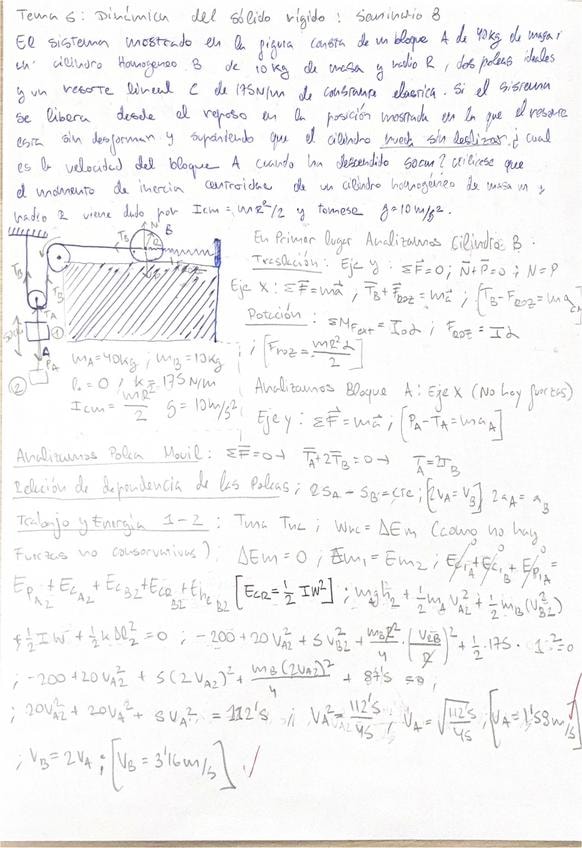 Tema 6: Dinámica del sólido rígido: Seminario 8
El sistema mostrado en la figura consta de un bloque A de 40kg de masa,
un cilindro Homogeneo B de 10kg de masa y radio R, dos poleas ideales
y un resorte lineal C de 175N/m de constante elastica. Si el sistema
se libera desde el reposo en la posición mostrada en la que el resorte
esta sin desformar y suponiendo que el cilindro rueda sin deslizar, ¿ cual
es la velocidad del bloque A cuando ha descendido 50cm? Utilicese que
el momento de inercia centroidal de un cilindro homogéneo de masa m y
radio R viene dado por Icm = mR²/2 y tomese g=10m/s².
En Primer lugar Analizamos Cilindro B.
Traslación: Eje y: ΣF=0; N+P=0; N=P
Eje X: ΣF=ma; TB+FROZ=ma; [TB-FROZ=maCM
Rotación: ΣMFext=I0α; FROZ=Iα
; [FROZ=mR²α/2]
N B
TB
TB TB
TA
50cm
A
PA
1
2
mA=40kg; mB=10kg
l0=0; k=175N/m
Icm=mR²/2 g=10m/s²
Analizamos Bloque A: Eje X (No hay fuerzas)
Eje y: ΣF=ma; [PA-TA=maA]
Analizamos Polea Movil: ΣF=0 → TA+2TB=0 → TA=2TB
Relación de dependencia de las Poleas; 2SA-SB=cte; [2VA=VB] 2aA=aB
Trabajo y Energía 1-2: Wnc=ΔEm (como no hay
Fuerzas no conservativas); ΔEm=0; Em1=Em2; EcA1+Ec1B+EP1A=
EPA2+EcA2+EcB2+EcRB2+ [EcR=½IW²]; mgh2+½mAVA2²+½mB(VB2²)
+½IW+½kΔl2²=0; -200+20VA2²+5VB2²+mBR²/4·(V2B/R)²+½·175·1²=0
; -200+20VA2²+5(2VA2)²+mB(2VA2)²/4+87'5=0;
; 20VA2²+20VA²+5VA²=112'5; VA2²=112'5/45; VA=√112'5/45; [VA=1'58m/s]
; VB=2VA; [VB=3'16m/s]